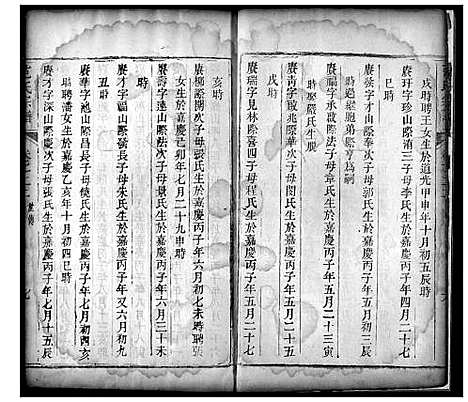 戌時聘王女生於道光甲申年十月初五辰時
賡玕字珍山際淯三子母李氏生於嘉慶丙子年四月二十七
巳時
賡발字才山際奉次子母郭氏生於嘉慶丙子年五月初三辰
時過繼胞弟際亨爲嗣
賡韞字承啟際于次子母章氏生於嘉慶丙子年五月二十三寅
時聘嚴氏生歿
賡靑字啟兆際于次子母閔氏生於嘉慶丙子年五月二十五
戌時
賡瑞字見林際喜四子母程氏生於嘉慶丙子年五月二十七
亥時
賡柳際開次子母張氏生於嘉慶丙子年六月初七未時聘張
女生於嘉慶己卯年七月二十九申時
賡壽字遠山際法次子母景氏生於嘉慶丙子年六月三十未
時
賡才字福山際榮次子母朱氏生於嘉慶丙子年又六月初九
賡華字池山際昌長子母傻氏生於嘉慶丙子年七月初四亥
時聘潘女生於嘉慶乙亥年十月初四巳時
賡才字深山際慶次子母張氏生於嘉慶丙子年七月十五辰